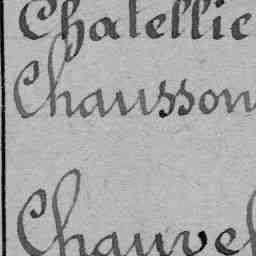 Chatellie
Chausson
Chauve